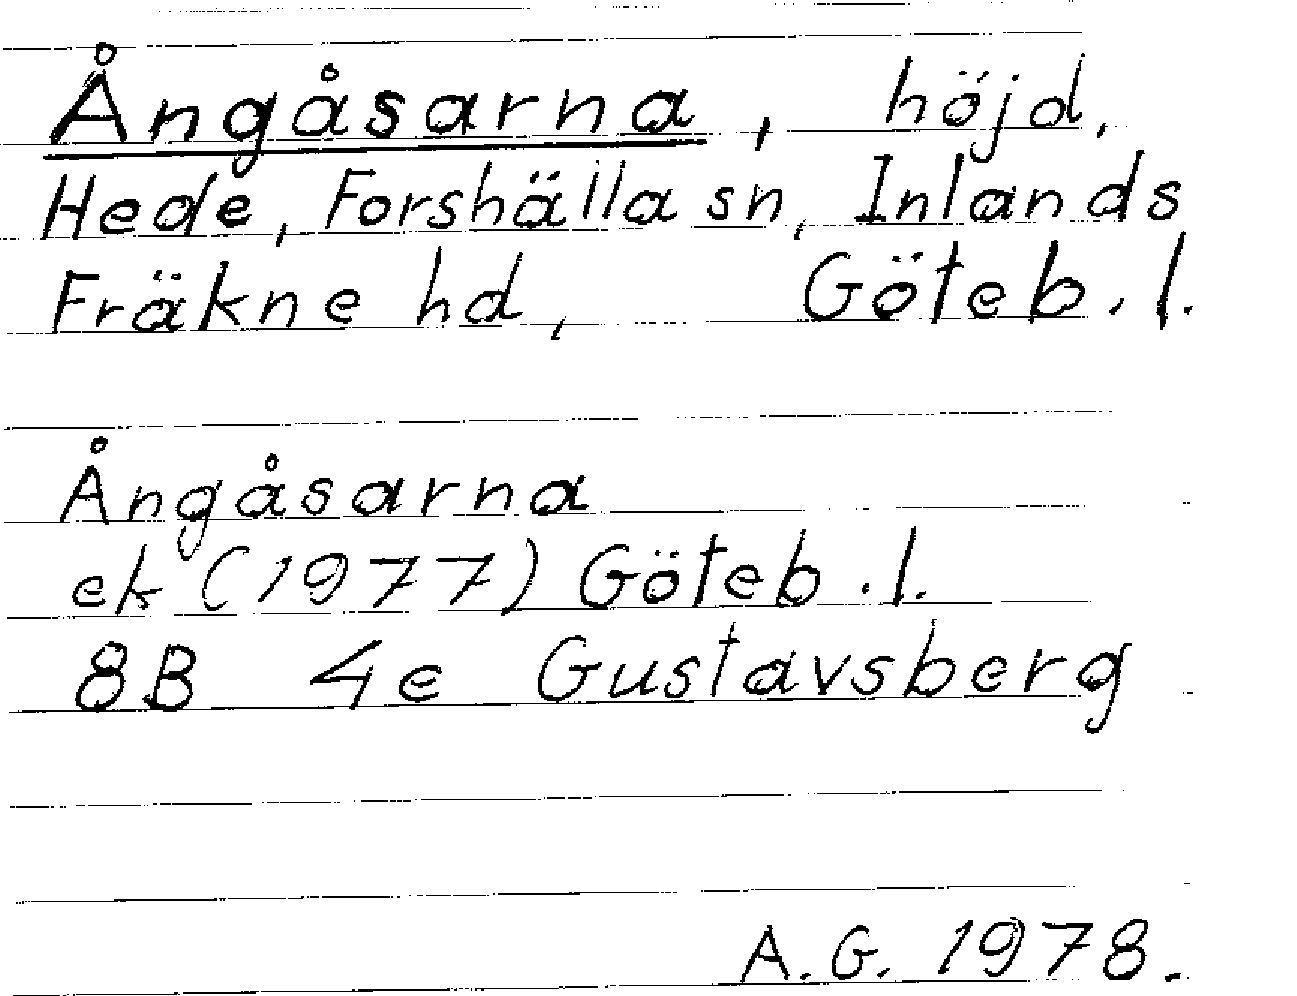 Ångåsarna, höjd,
Hede, Forshälla sn, Inlands
Fräkne hd, Göteb. l.
Ångåsarna
ek (1977) Göteb. l.
8B 4e Gustavsberg
A.G. 1978.